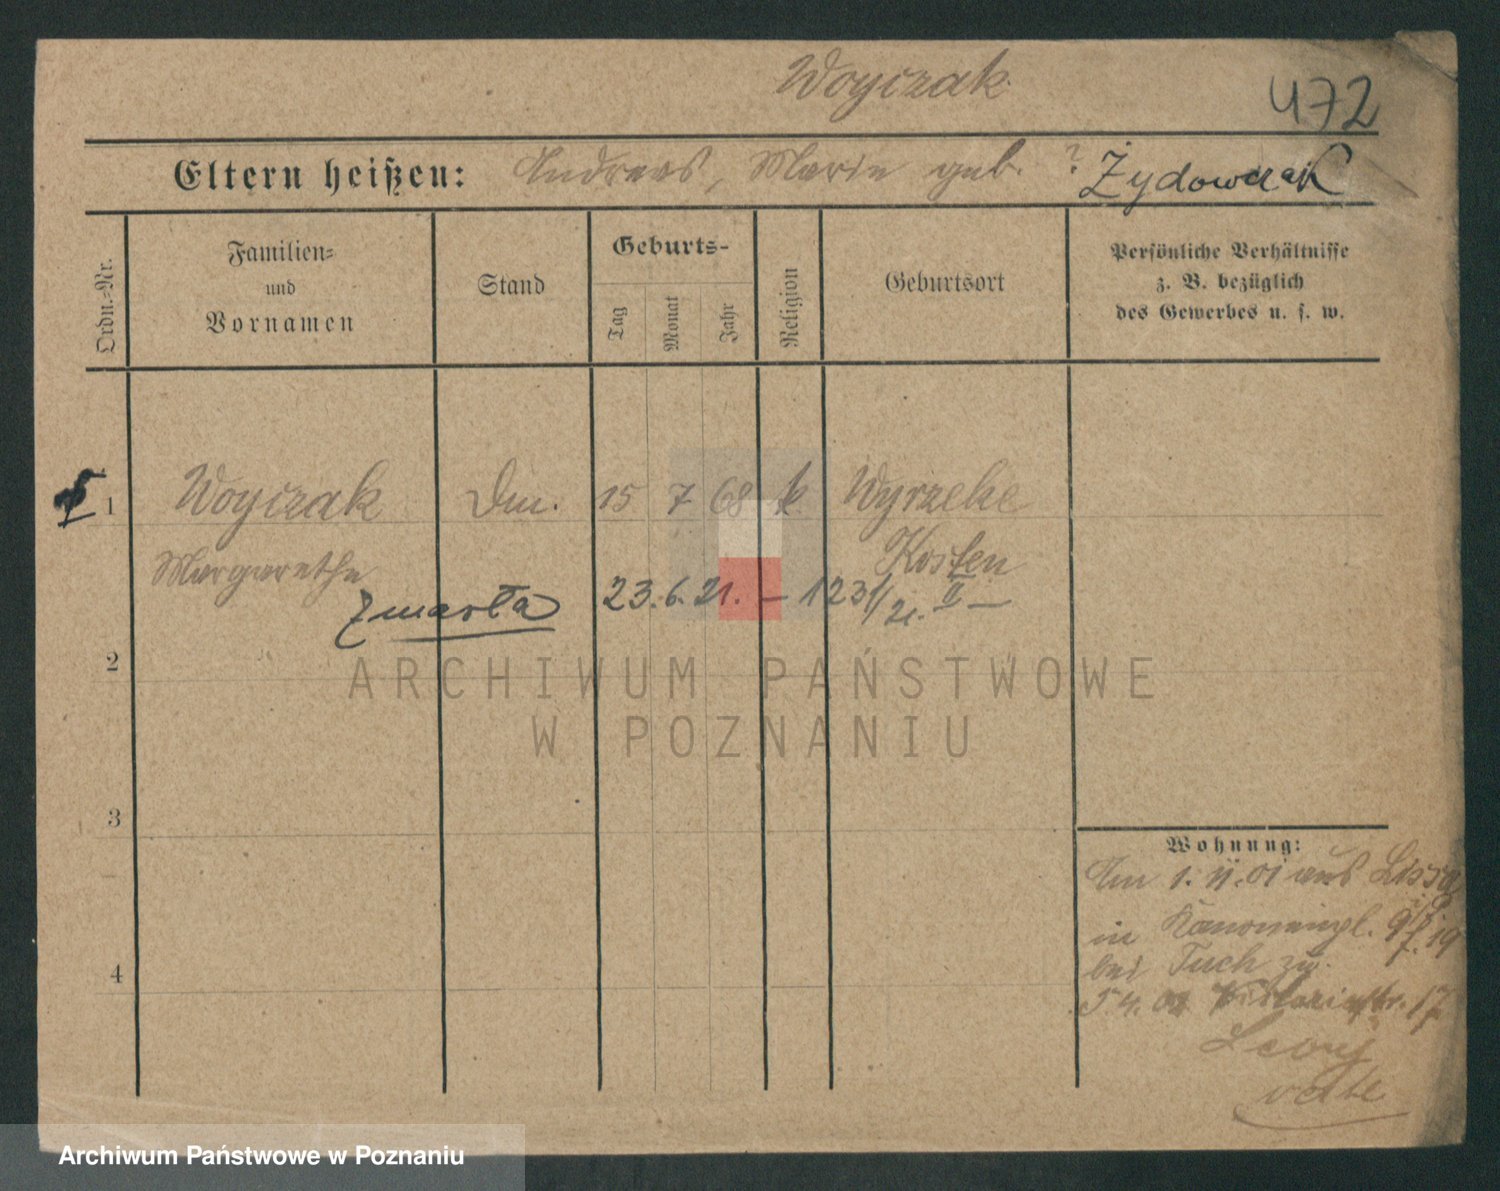 Woyczak
472
Eltern heißen: Andreas, Marie geb. ? Żydowczak
Ordn.=Nr.
Familien=
und
Vornamen
Stand
Geburts-
Tag
Monat
Jahr
Religion
Geburtsort
Persönliche Verhältnisse
z. B. bezüglich
des Gewerbes u. s. w.
1 Woyczak 15 7 68 k Wyrzeke
Margarethe Kosten
zmarła 23. 6. 21. – 1231/21. II –
2
ARCHIWUM PAŃSTWOWE
W POZNANIU
3
Wohnung:
Am 1. 11. 01 aus Lissa
in Kanonenpl. 9
bei Tuch zg.
17
Levy
4
Archiwum Państwowe w Poznaniu